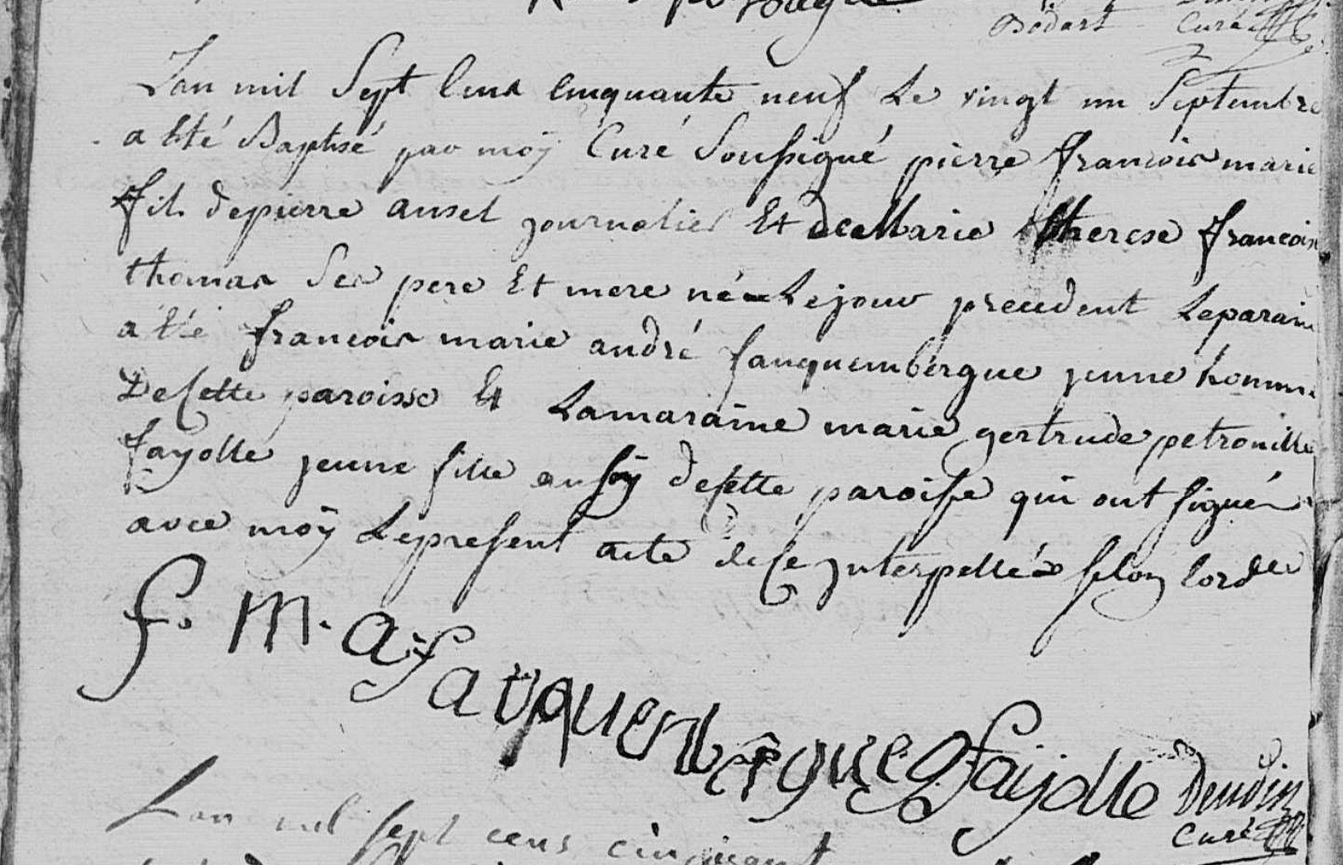 Bodart Curé
Lan mil Sept Cens Cinquante neuf Le vingt un Septembre
a Eté Baptisé par moÿ Curé Soussigné pierre francois marie
fils depierre ansel journalier Et de Marie therese francoise
thomas Ses pere Et mere né Lejour precedent Leparain
a Eté francois marie andré fauquembergue jeune homme
De Cette paroisse Et Lamaraine marie gertrude petronille
fayolle jeune fille aussy de Cette paroisse qui ont signés
avec moÿ Lepresent acte de Ce jnterpellés selon lordce
f. m. a. fauquenbergue g fayolle Deudin
Curé
Lan mil sept cens cinquant